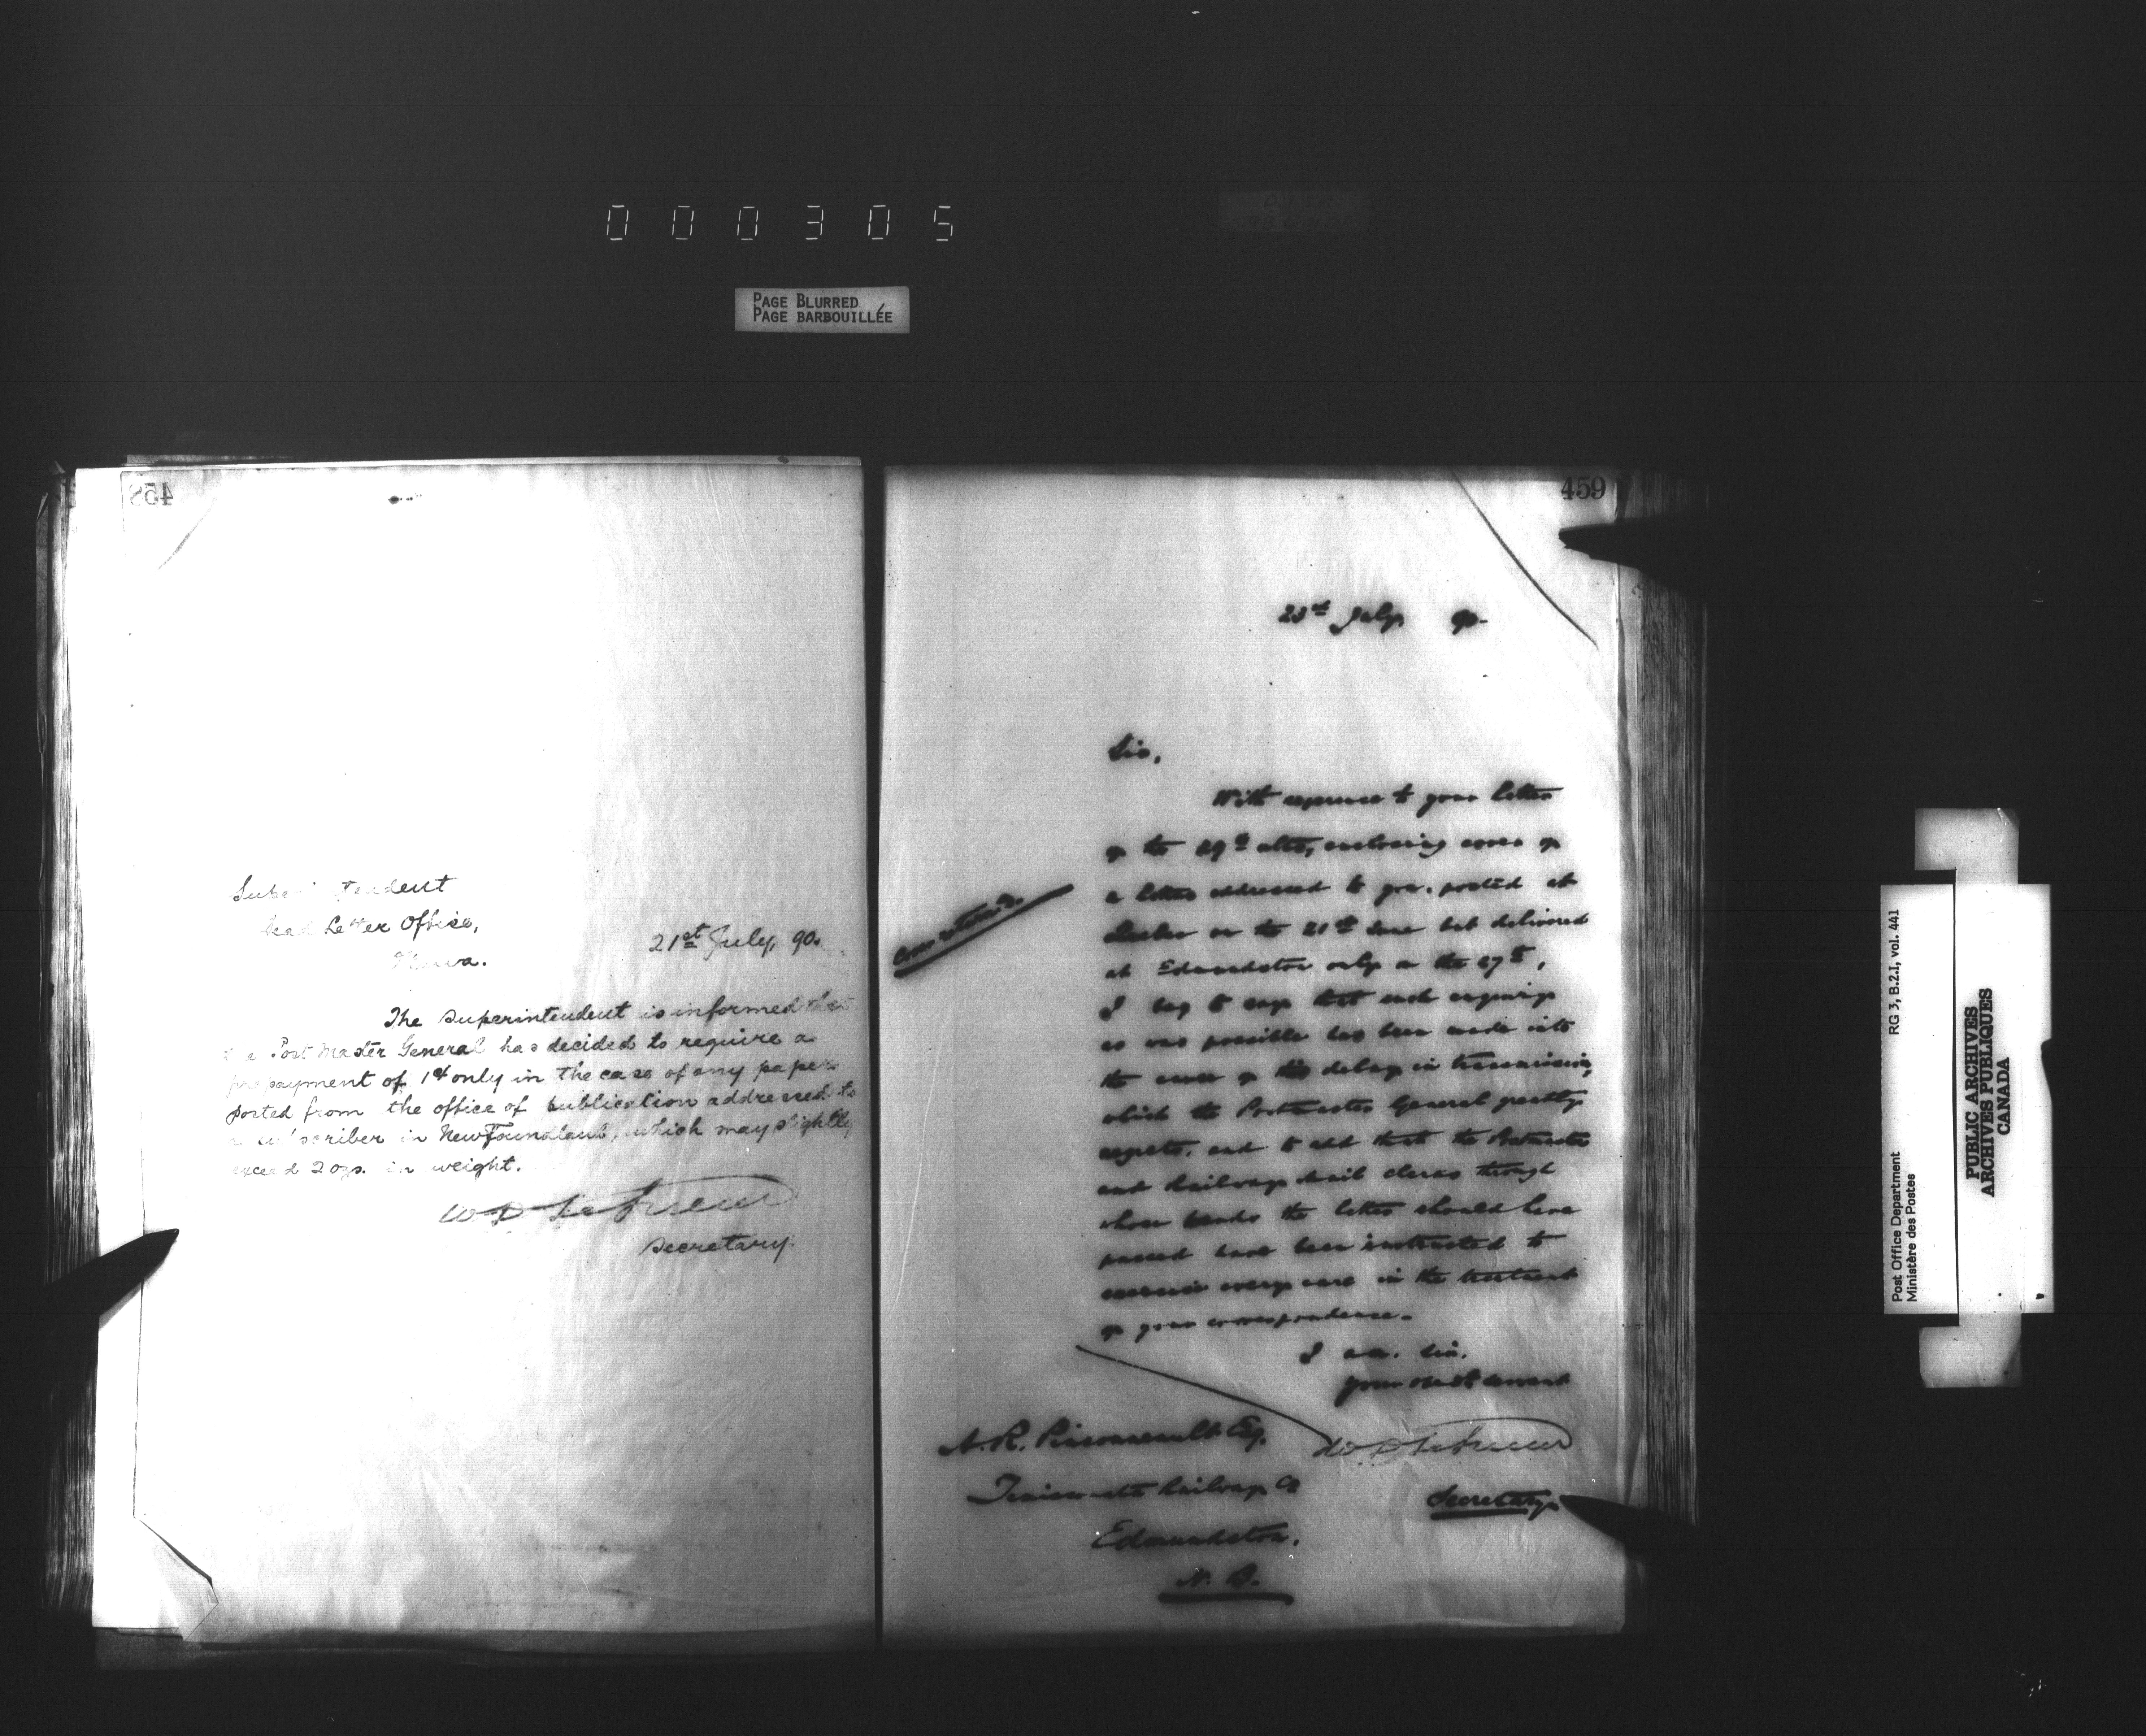 000305
PAGE BLURRED
PAGE BARBOUILLÉE
458
Superintendent
Dead Letter Office,
Ottawa.
21st July, 90.
The Superintendent is informed that
the Post Master General has decided to require a
prepayment of 1¢ only in the case of any paper
posted from the office of publication addressed to
a subscriber in Newfoundland, which may slightly
exceed 2 ozs. in weight.
W D LeSueur
Secretary.
459
23rd July, 90-
Sir,
With reference to your letter
of the 29th ulto, enclosing cover of
a letter addressed to you, posted at
Quebec on the 21st June but delivered
at Edmundston only on the 27th,
I beg to say that such enquiry
as was possible has been made into
the cause of this delay in transmission,
which the Postmaster General greatly
regrets, and to add that the Postmaster
and Railway Mail Clerks through
whose hands the letter should have
passed have been instructed to
exercise every care in the treatment
of your correspondence.
I am, Sir,
Your obedt servant
Cover returned.
W D LeSueur
Secretary
N. R. Pinsonneault Esq.
Temiscouata Railway Co
Edmundston,
N. B.
Post Office Department
Ministère des Postes
RG 3, B.2.I, vol. 441
PUBLIC ARCHIVES
ARCHIVES PUBLIQUES
CANADA